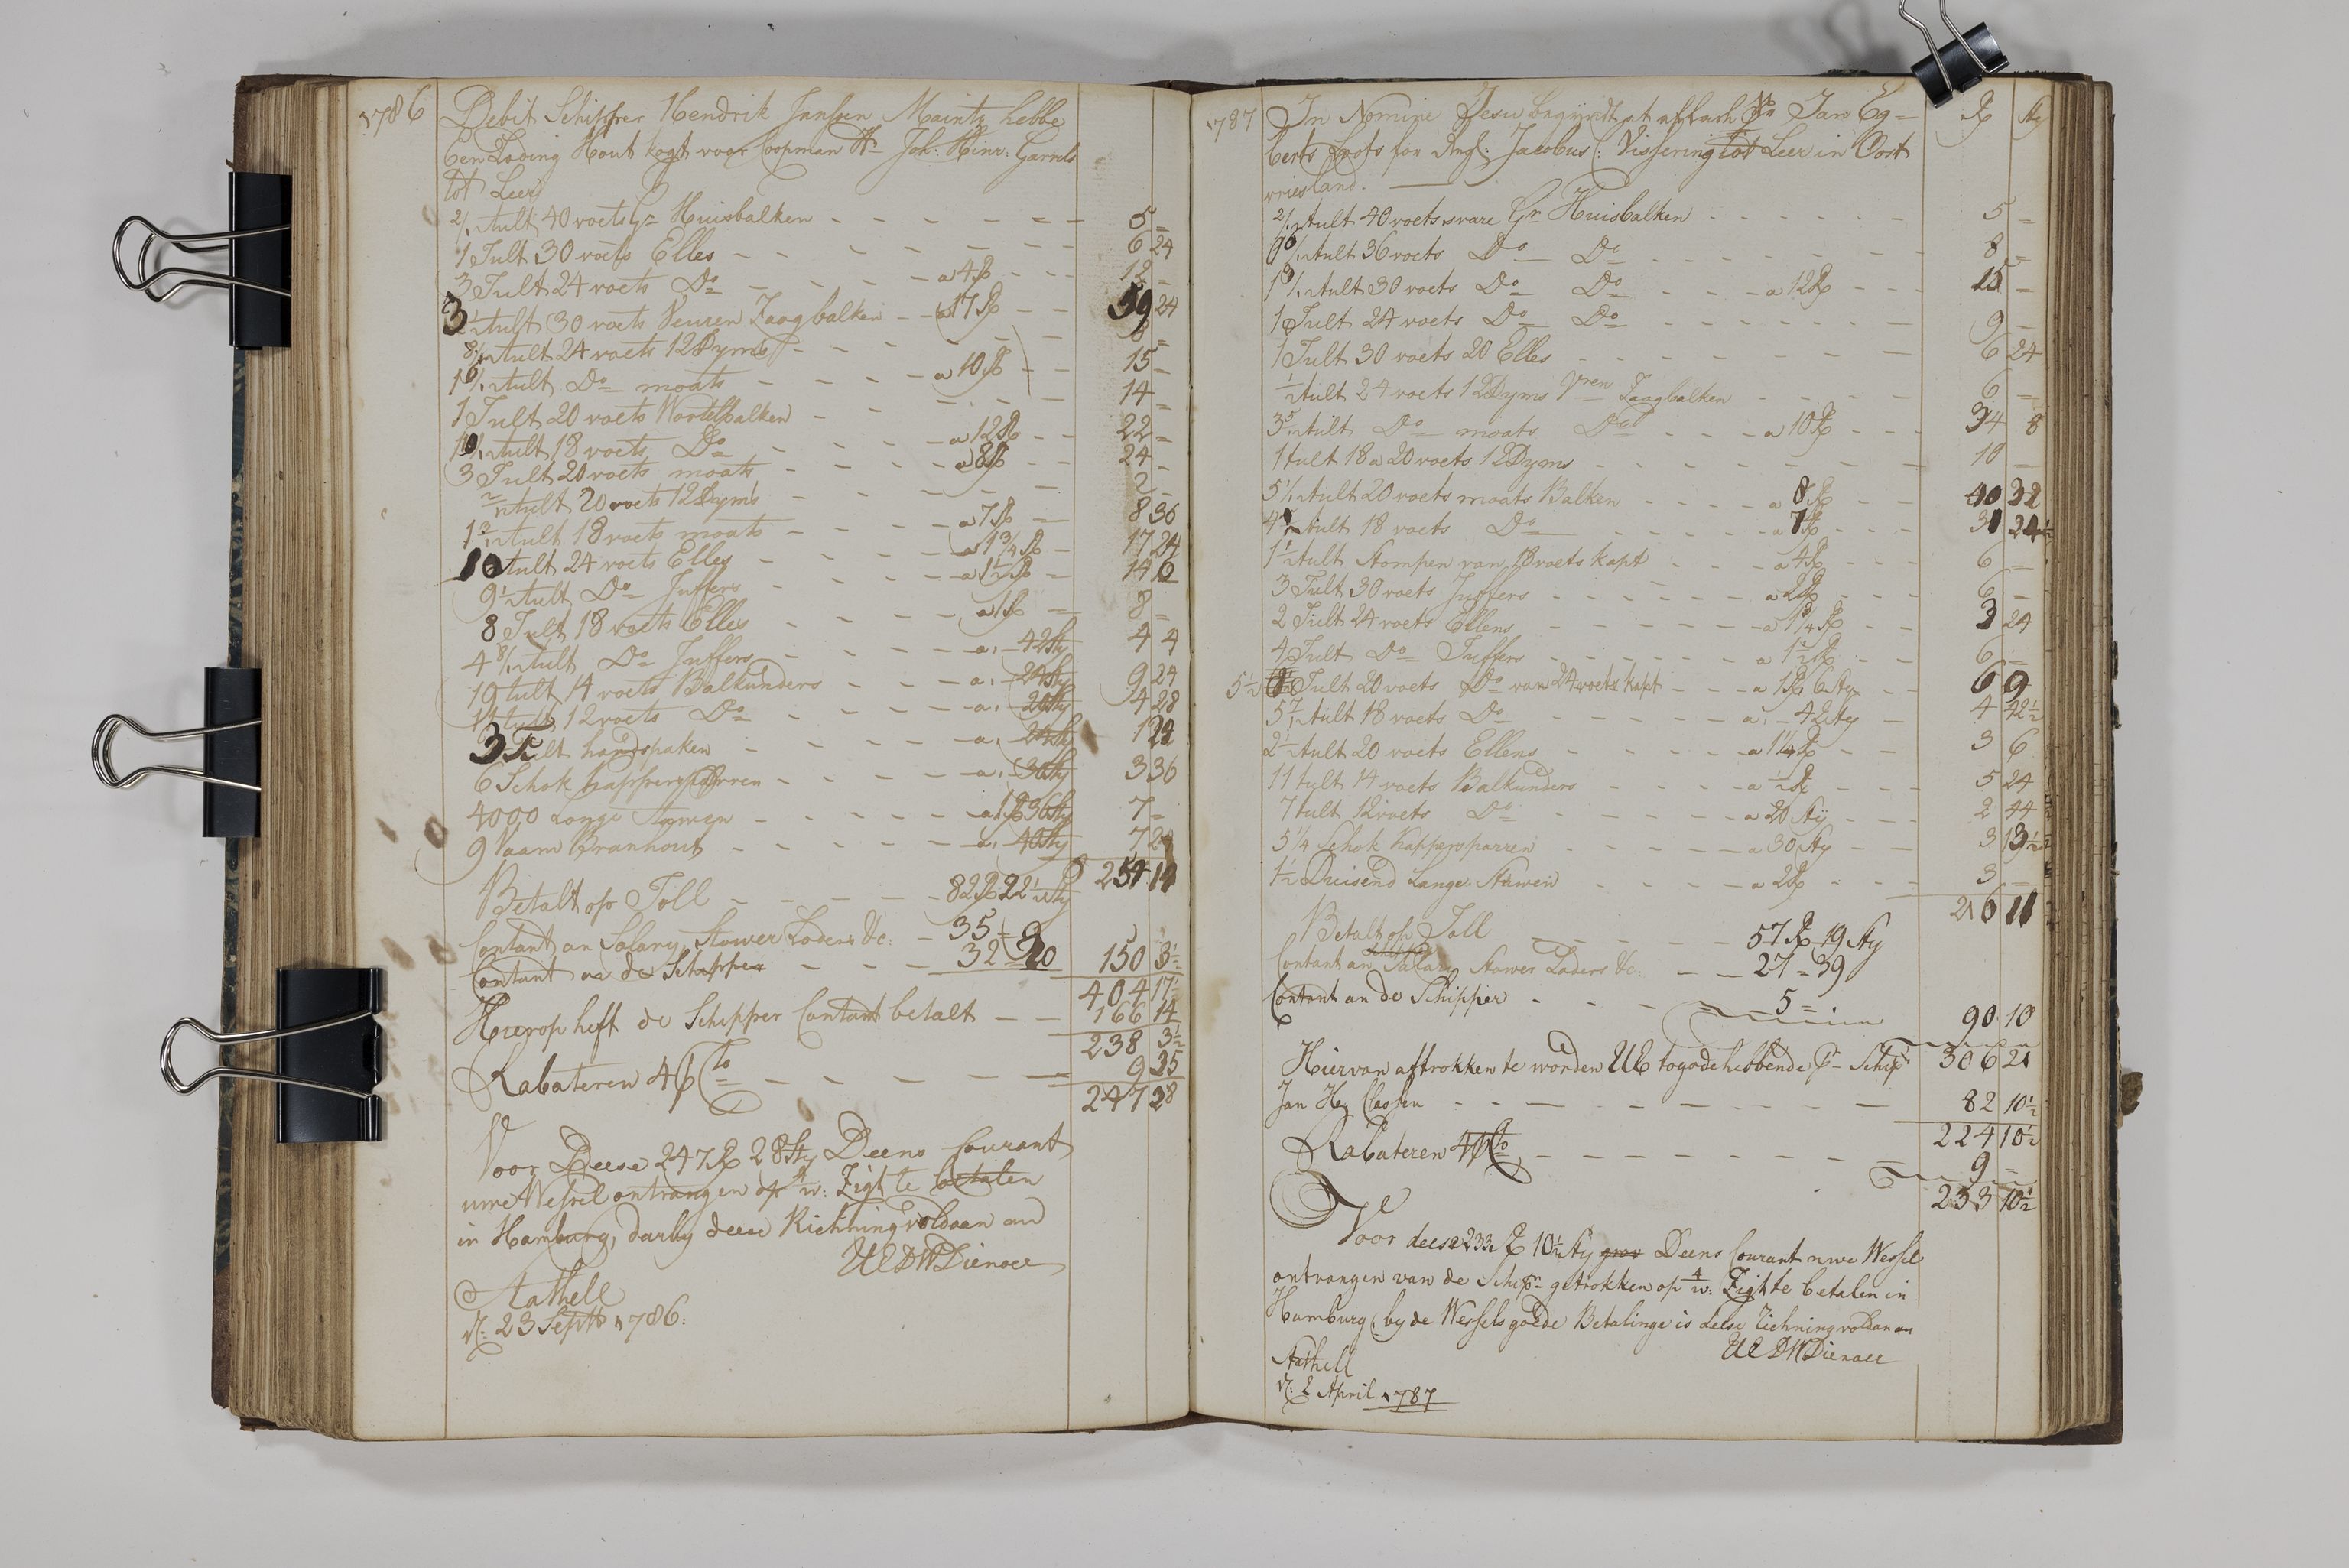 1786 Debit Schipper Hendrik Janssen Maintz hebbe
Een Loding Hout kogt voor Coopman Hr Joh: Hinr: Garrels
tot Leer
2/1 Tult 40 voets Gr Huisbalken - - - 5 =
1 Tult 30 voets Elles - - - 6 24
3 Tult 24 voets Do - - - a 4 R - - 12 =
3 1/2 Tult 30 voets Veuren Zaagbalken - - a 17 R - - 59 24
8/1 Tult 24 voets 12 Dyms - - - 8 =
1 6/1 Tult Do moats - - - a 10 R - - 15 =
1 Tult 20 voets Wortelbalken - - - 14 =
1 10/1 Tult 18 voets Do - - - a 12 R - - 22 =
3 Tult 20 voets moats - - - a 8 R - - 24 -
2/1 Tult 20 voets 12 Dyms - - - 2 -
1 3/1 Tult 18 voets moats - - - a 7 R - 8 36
10 Tult 24 voets Elles - - - a 1 3/4 R - 17 24
9 1/2 Tult Do Juffers - - - a 1 1/2 R - 14 6
8 Tult 18 voets Elles - - - a 1 R - 8 =
4 8/1 Tult Do Juffers - - - a - 42 Sty 4 4
19 tult 14 voets Balkunders - - - a - 24 Sty 9 24
14 tult 12 voets Do - - - a - 20 Sty 4 28
3 Tult handspaken - - - a - 24 Sty 1 24
6 Schok happersparren - - - a - 30 Sty 3 36
4000 Lange - - - a 1 R 36 Sty 7 -
9 Vaam Branhout - - - a - 40 Sty 7 24
254 14
Betalt op Toll - - - 82 R 22 1/2 Sty
Contant an Salary, Stower Loders &c: - 35 =
Contant aa de Schipper - - - 32 = 20 150 3 1/2
404 17 1/2
Hierop heft de Schipper Contant betalt - - 166 14
238 3 1/2
Rabateren 4 p Cto - - - 9 25
247 28
Voor Deese 247 R 28 Sty Deens Courant
uwe Wessel ontvangen op 4/w: Zigt te betalen
in Hamburg, darby deese Richning voldaan and
UEDWDienaer
Nathell
d: 23 Septb 1786:
1787 In Nomine Jesu begyndt at afladh Sr Jan Eg=
berts Loots for Mr: Jacobus C: Vissering tot Leer in Oost
vriesland. R Sty
2/1 Tult 40 voets svare Gr Huisbalken - - - 5 =
Tult 36 voets Do Do - - - 8 =
1 3/1 Tult 30 voets Do Do - - - a 12 R - - 15 -
1 Tult 24 voets Do Do - - - 9 -
1 Tult 30 voets 20 Elles - - - 6 24
1/2 Tult 24 voets 12 Dyms Vren Zaagbalken - - - 6 =
3 5/1 Tult Do moats Do - - - a 10 R - - 34 8
1 tult 18 a 20 voets 12 Dyms - - - 10 -
5 1/1 Tult 20 voets moats Balken - - - a 8 R - - 40 32
4 1/2 Tult 18 voets Do - - - a 7 R - - 31 24 1/2
1 1/2 Tult Stompen van 18 voets kapt - - a 4 R - - 6 =
3 Tult 30 voets Juffers - - - a 2 R - - 6 -
2 Tult 24 voets Ellens - - - a 1 3/4 R - - 3 24
4 Tult Do Juffers - - - a 1 1/2 R - - 6 =
5 1/2 Tult 20 voets Do van 24 voets kapt - - a 1 R 6 Sty - - 6 9
5 7/1 Tult 18 voets Do - - - a - 42 Sty - 4 42 1/2
2 1/2 Tult 20 voets Ellens - - - a 1 1/4 R - - 3 6
11 tult 14 voets Balkunders - - - a 1/2 R - - 5 24
7 tult 12 voets Do - - - a 20 Sty - - 2 44
5 1/4 Schok Kappersparren - - - a 30 Sty - - 3 13 1/2
1 1/2 Duisend Lange Stawen - - - a 2 R - - 3 =
216 11
Betalt op Toll - - - 57 R 19 Sty
Contant an Salary Stower Loders &c: - - 27 = 39
Contant an de Schipper - - - 5 = 90 10
Hiervan aftrokken te worden UE togode hebbende pr Schipr 306 21
Jan H Classen - - - 82 10 1/2
224 10 1/2
Rabateren 4 p Cto - - - 9 -
233 10 1/2
Voor deese 233 R 10 1/2 Sty Deens Courant uwe Wessel
ontvangen van de Schipr getrokken op 4/w: Zigt te betalen in
Hamburg, by de Wessels goede Betalinge is deese Richning voldan an
UE DWDienaer
Nathell
d: 2 April 1787